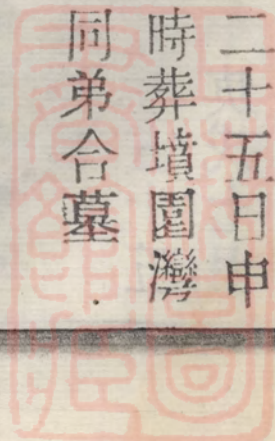 二十五日申
時葬墳園灣
同弟合墓